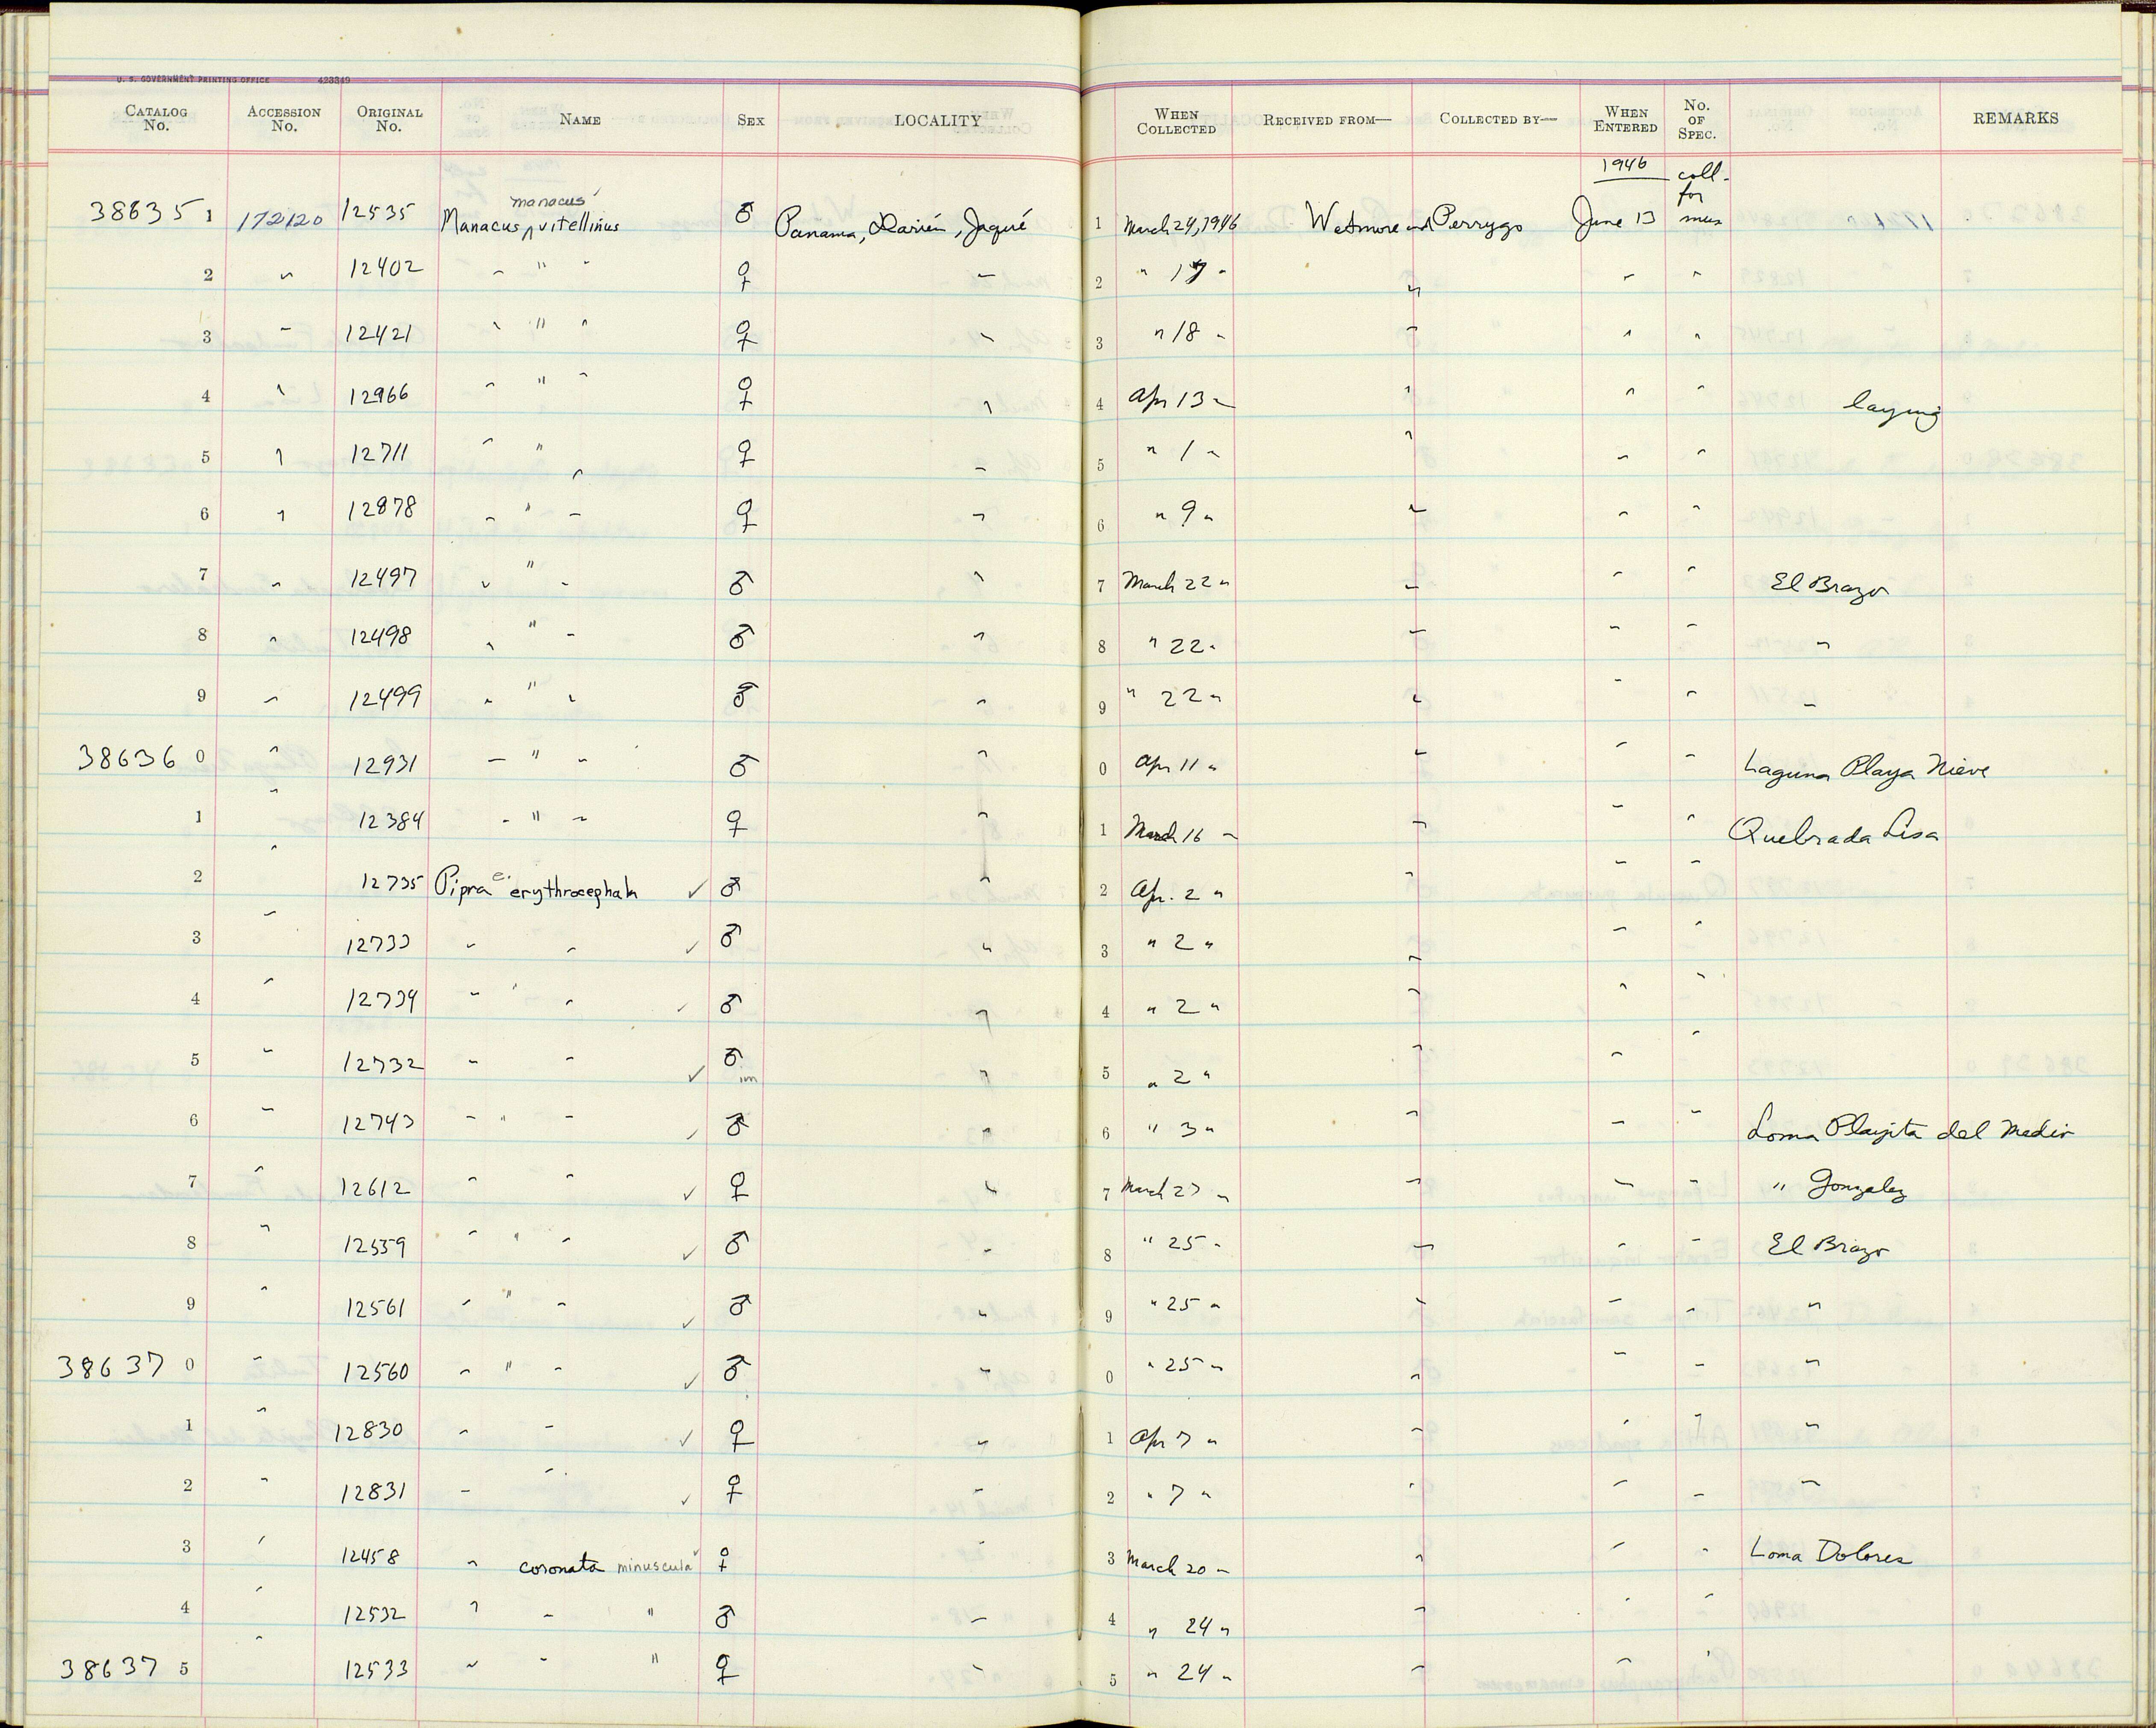 U. S. GOVERNMENT PRINTING OFFICE 423349
CATALOG No. ACCESSION No. ORIGINAL No. NAME SEX LOCALITY WHEN COLLECTED RECEIVED FROM— COLLECTED BY— WHEN ENTERED No. OF SPEC. REMARKS
1946 coll. for mus
386351 172120 12535 Manacus manacus vitellinus ♂ Panama, Darién, Jaqué 1 March 24, 1946 Wetmore and Perrygo June 13
2 " 12402 " " " ♀ " 2 " 17 " " " "
3 " 12421 " " " ♀ " 3 " 18 " " " "
4 " 12966 " " " ♀ " 4 Apr 13 " " " " laying
5 " 12711 " " " ♀ " 5 " 1 " " " "
6 " 12878 " " " ♀ " 6 " 9 " " " "
7 " 12497 " " " ♂ " 7 March 22 " " " " El Brazo
8 " 12498 " " " ♂ " 8 " 22 " " " " "
9 " 12499 " " " ♂ " 9 " 22 " " " " "
386360 " 12931 " " " ♂ " 0 Apr 11 " " " " Laguna Playa Nieve
1 " 12384 " " " ♀ " 1 March 16 " " " " Quebrada Lisa
2 " 12735 Pipra e. erythrocephala ✓ ♂ " 2 Apr. 2 " " " "
3 " 12733 " " ✓ ♂ " 3 " 2 " " " "
4 " 12734 " " " ✓ ♂ " 4 " 2 " " " "
5 " 12732 " " ✓ ♂ im " 5 " 2 " " " "
6 " 12743 " " " ✓ ♂ " 6 " 3 " " " " Loma Playita del Medio
7 " 12612 " " ✓ ♀ " 7 March 27 " " " " " Gonzalez
8 " 12559 " " " ✓ ♂ " 8 " 25 " " " " El Brazo
9 " 12561 " " " ✓ ♂ " 9 " 25 " " " " "
386370 " 12560 " " " ✓ ♂ " 0 " 25 " " " " "
1 " 12830 " " ✓ ♀ " 1 Apr 7 " " " " "
2 " 12831 " " ✓ ♀ " 2 " 7 " " " " "
3 " 12458 " coronata minuscula ✓ ♀ " 3 March 20 " " " " Loma Dolores
4 " 12532 " " " ♂ " 4 " 24 " " " "
386375 " 12533 " " " ♀ " 5 " 24 " " " "